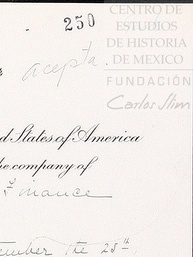 250
CENTRO DE
ESTUDIOS
DE HISTORIA
DE MEXICO
acepta.
FUNDACIÓN
Carlos Slim
d States of America
he company of
Finance
ember the 25th